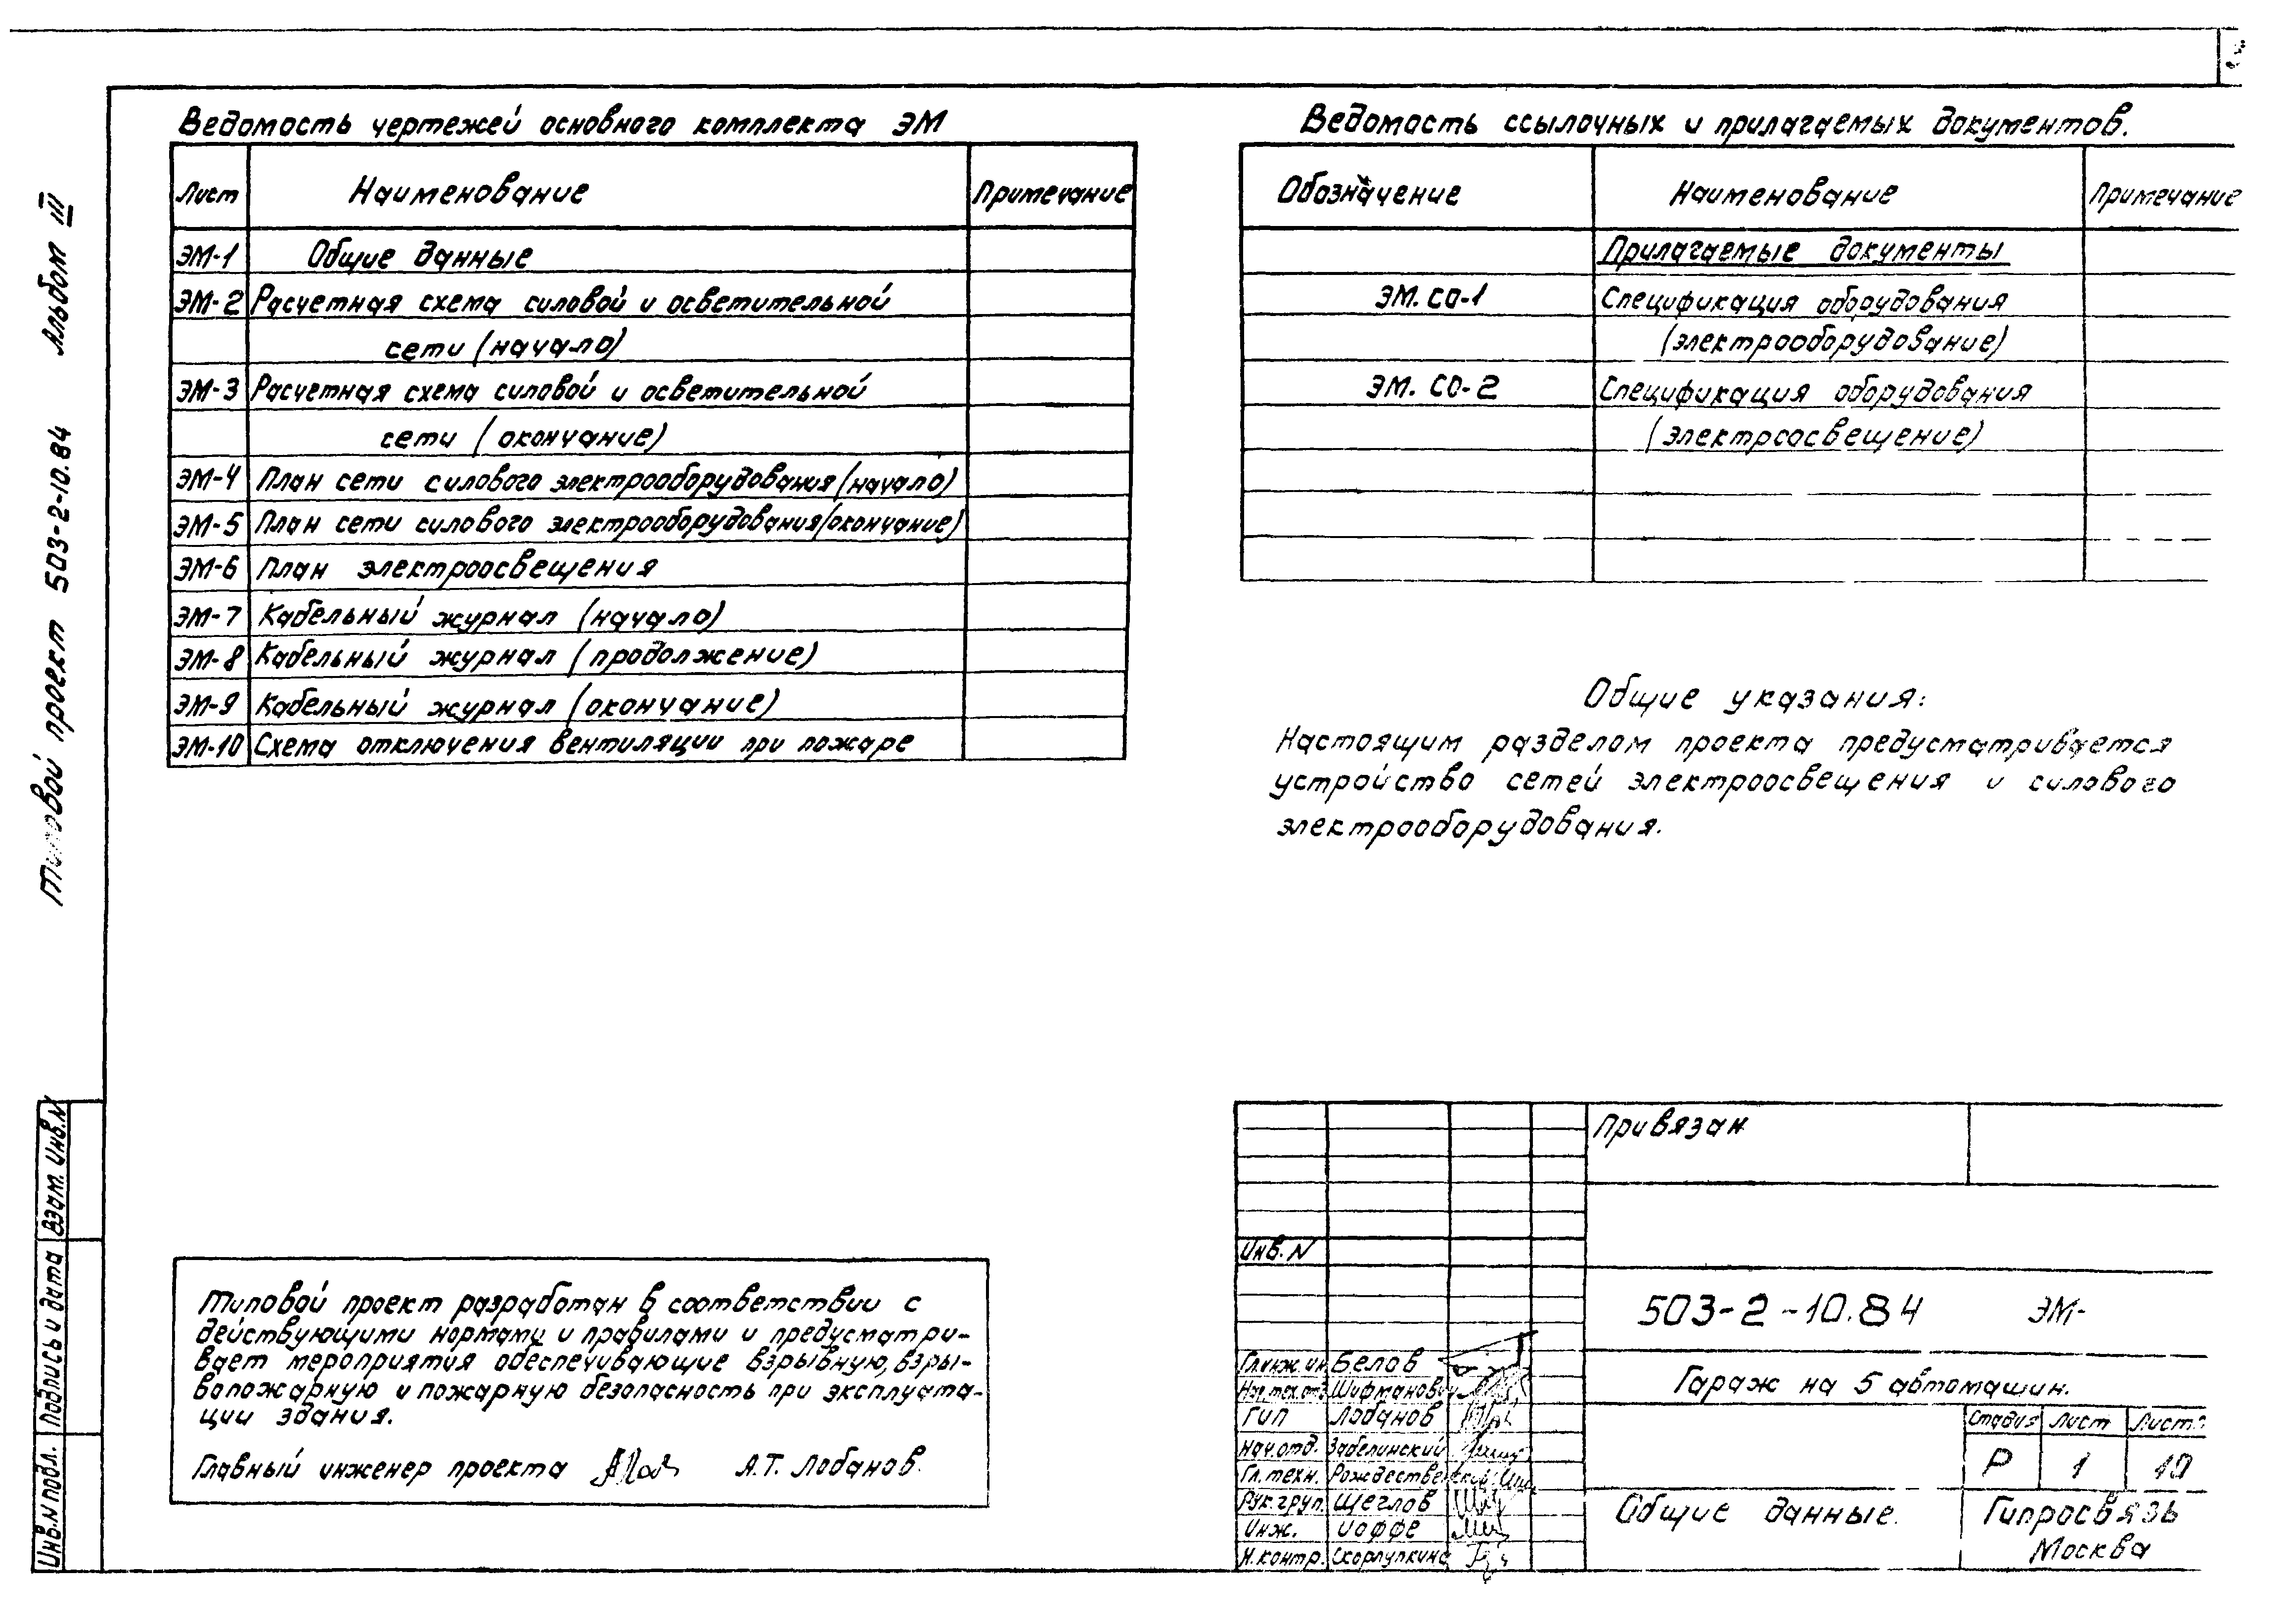 Типовой проект 503-2-10.84 Альбом III
Ведомость чертежей основного комплекта ЭМ
Лист Наименование Примечание
ЭМ-1 Общие данные
ЭМ-2 Расчетная схема силовой и осветительной
сети (начало)
ЭМ-3 Расчетная схема силовой и осветительной
сети (окончание)
ЭМ-4 План сети силового электрооборудования (начало)
ЭМ-5 План сети силового электрооборудования (окончание)
ЭМ-6 План электроосвещения
ЭМ-7 Кабельный журнал (начало)
ЭМ-8 Кабельный журнал (продолжение)
ЭМ-9 Кабельный журнал (окончание)
ЭМ-10 Схема отключения вентиляции при пожаре
Ведомость ссылочных и прилагаемых документов.
Обозначение Наименование Примечание
Прилагаемые документы
ЭМ. СО-1 Спецификация оборудования
(электрооборудование)
ЭМ. СО-2 Спецификация оборудования
(электроосвещение)
Общие указания:
Настоящим разделом проекта предусматривается
устройство сетей электроосвещения и силового
электрооборудования.
Типовой проект разработан в соответствии с
действующими нормами и правилами и предусматри-
вает мероприятия обеспечивающие взрывную, взры-
вопожарную и пожарную безопасность при эксплуата-
ции здания.
Главный инженер проекта А.Т. Лобанов.
Инв.N подл. Подпись и дата Взам. инв.N
Привязан
Инв. N
503-2-10.84 ЭМ-
Гараж на 5 автомашин.
Гл.инж.ин. Белов
Нач.тех.отд. Шифманович
ГИП Лобанов
Нач.отд. Забелинский
Гл.техн. Рождественский
Рук.груп. Щеглов
Инж. Иоффе
Н.контр. Скорлупкина
Стадия Лист Лист.
Р 1 10
Общие данные.
Гипросвязь
Москва